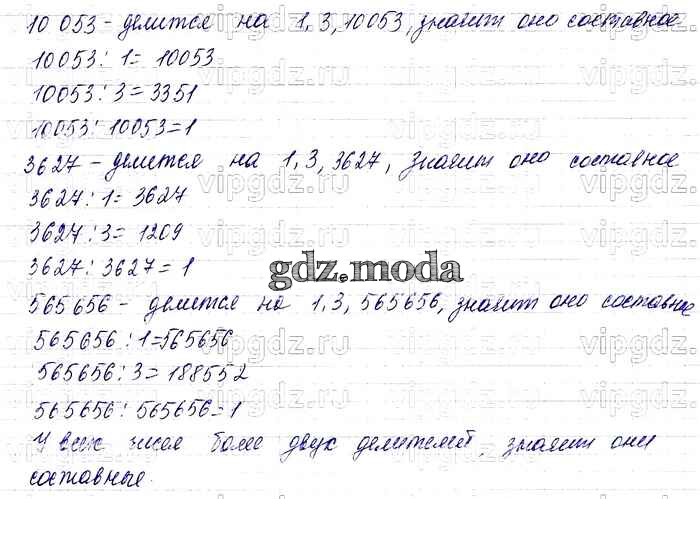 10 053 - делится на 1, 3, 10053, значит оно составное
10053 : 1 = 10053
10053 : 3 = 3351
10053 : 10053 = 1
3627 - делится на 1, 3, 3627, значит оно составное
3627 : 1 = 3627
3627 : 3 = 1209
3627 : 3627 = 1
gdz.moda
565656 - делится на 1, 3, 565656, значит оно составное
565656 : 1 = 565656
565656 : 3 = 188552
565656 : 565656 = 1
У всех чисел более двух делителей, значит они
составные.